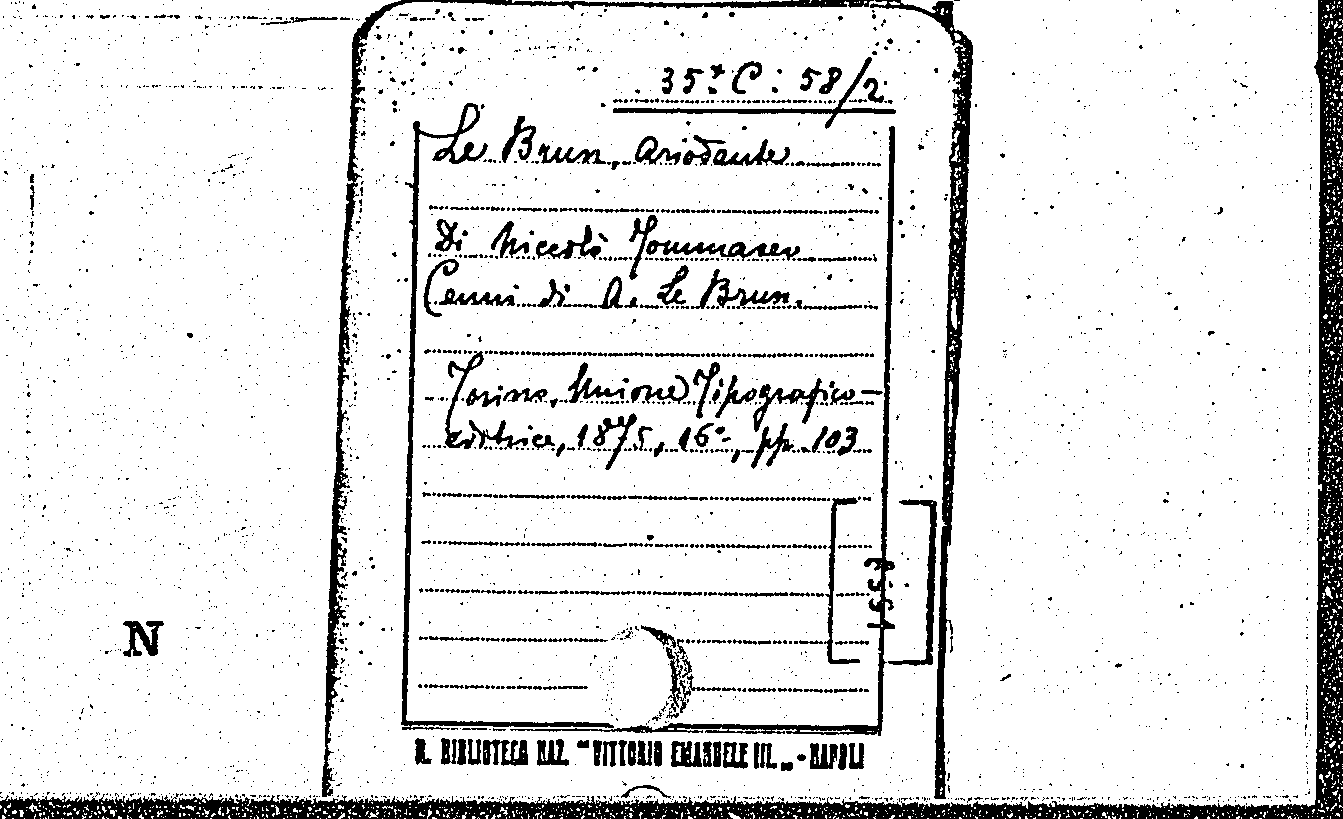 35ª C: 58/2
Le Brun, Ariodante.
Di Niccolò Tommaseo.
Cenni di A. Le Brun.
Torino, Unione Tipografico-
editrice, 1875, 16º, pp. 103
N
R. BIBLIOTECA NAZ. "VITTORIO EMANUELE III." - NAPOLI